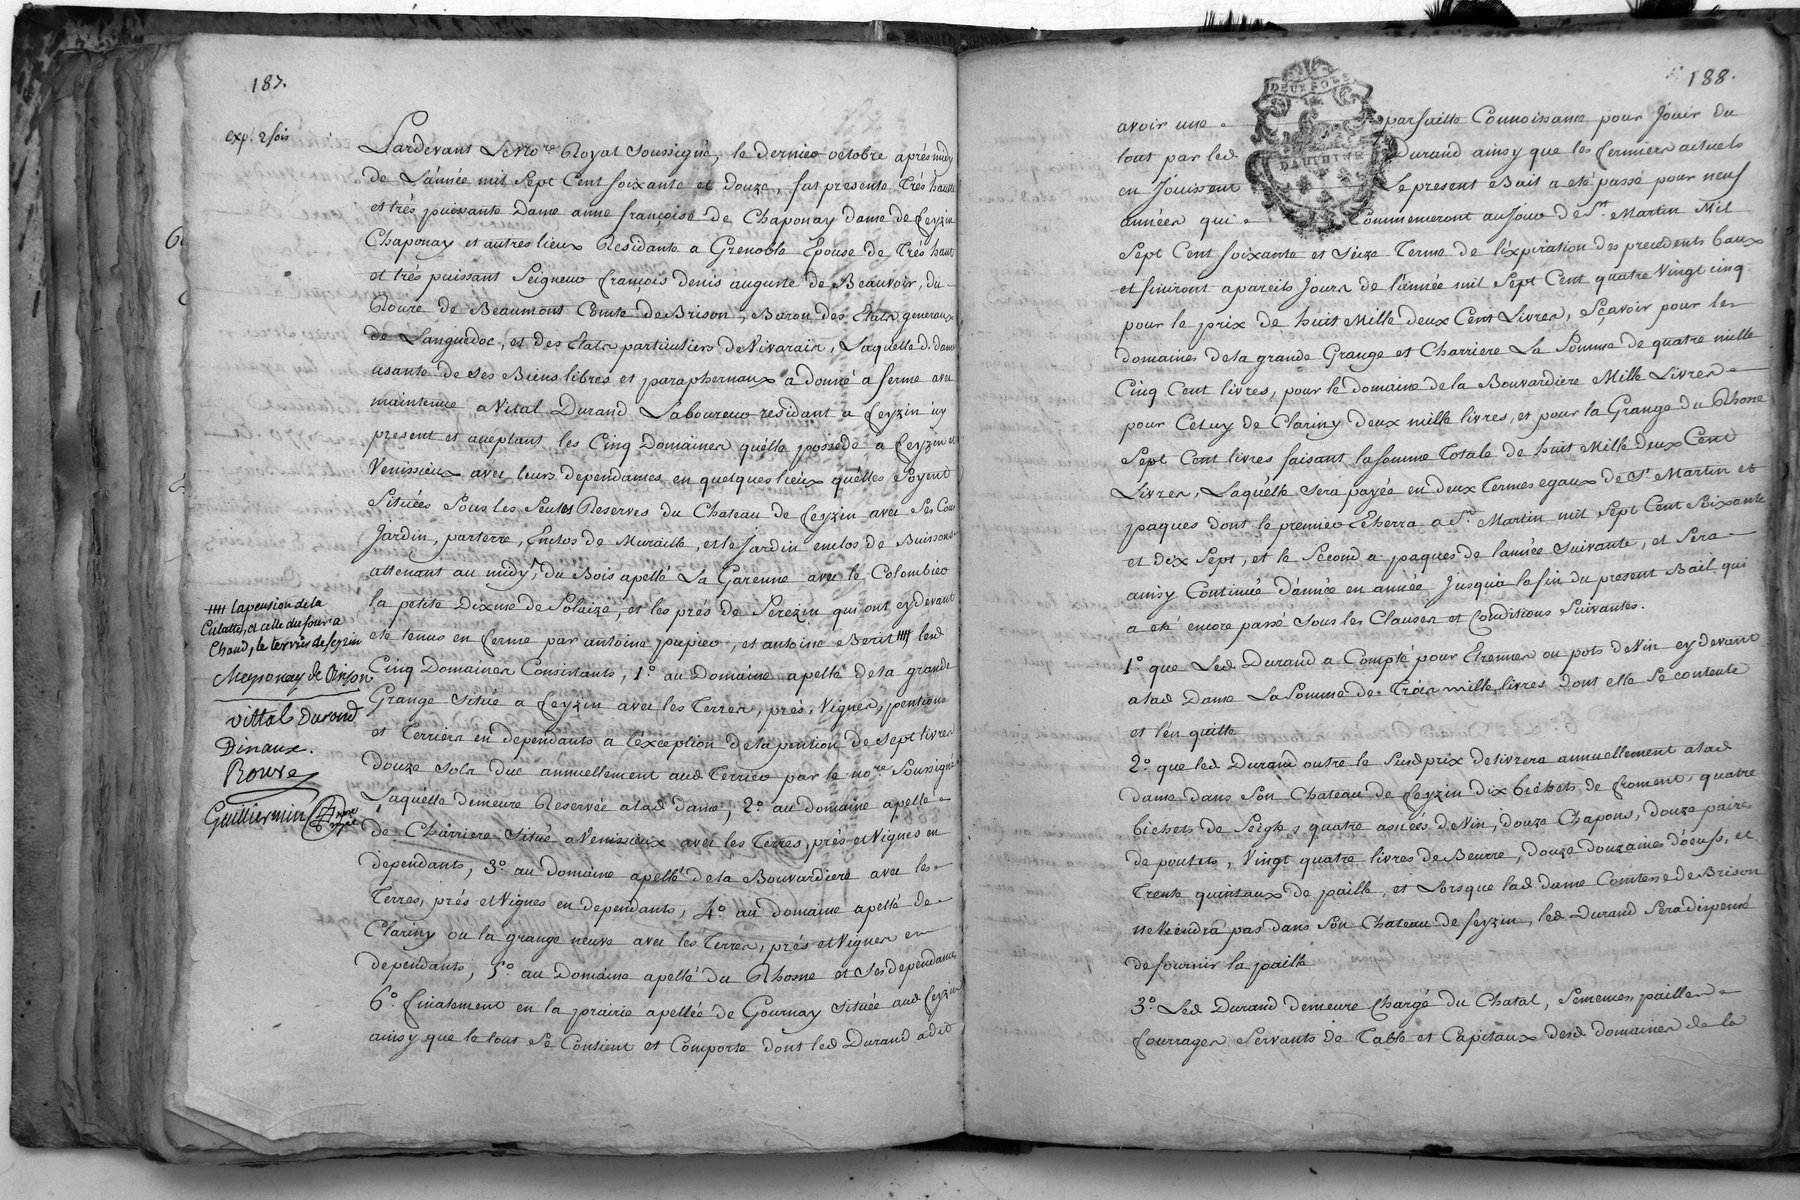 187.
exp.e 2 fois
Pardevant Le no.re Royal soussigné, le dernier octobre après midy
de L'année mil Sept Cent soixante et douze, fut presente Très haute
et très puissante Dame anne françoise de Chaponay dame de feyzin
Chaponay et autres lieux Residante a Grenoble Epouse de Très haut
et très puissant Seigneur françois denis auguste de Beauvoir, du
Roure de Beaumont Comte de Brison, Baron des Etats generaux
de Languedoc, et des Etats particuliers de Vivarais, Laquelle d. dame
usante de ses Biens libres et paraphernaux a donné a ferme avec
maintenue a Vital Durand Laboureur residant a feyzin icy
present et acceptant les Cinq Domaines quélle possede a feyzin et
Venissieux avec leurs dependances en quelques lieux quélles Soyent
Situées Sous les Seules Reserves du Chateau de feyzin avec Ses Cour
Jardin, parterre, Enclos de Muraille, et le Jardin enclos de Buissons
attenant au midy, du Bois apellé La Garenne avec le Colombier
la petite Dixme de Solaize, et les prés de Serezin qui ont cy devant
eté tenus en ferme par antoine pupier, et antoine Berit lesd
Cinq Domaines Consistants, 1.° au Domaine apellé dela grande
Grange Situé a feyzin avec les Terres, prés, Vignes, pentions
et Terriers en dependants a l'exception de la pention de sept livres
douze sols due annuellement aud Terrier par le no.re Soussigné
Laquélle demeure Reservée a lad dame, 2.° au domaine apellé
de Charriere Situé a Venissieux avec les Terres, prés et Vignes en
dependants, 3.° au domaine apellé dela Bouvardiere avec les
Terres, prés et Vignes en dependants, 4.° au domaine apellé de
Clariny ou la grange neuve avec les Terres, prés et Vignes en
dependants, 5.° au Domaine apellé du Rhosne et Ses dependances
6.° finalement en la prairie apellée de Gournay Située aud feyzin
ainsy que le tout Se Contient et Comporte dont led Durand a dit
la pension de la
Culatte, et celle du four a
Chaud, le terrier de feyzin
Chaponay de Brison
Vittal Durand
Dinaux.
Rouve
Guilliermin
188.
DEUX SOLS
DAUPHINE
avoir une parfaitte Connoissance pour Jouir du
tout par led Durand ainsy que les fermiers actuels
en Jouissent Le present Bail a eté passé pour neuf
années qui Commenceront au Jour de S.t Martin Mil
Sept Cent soixante et Séize Terme de l'éxpiration des precedents baux
et finiront a pareils Jours de l'année mil Sept Cent quatre Vingt cinq
pour le prix de huit Mille deux Cent Livres, Sçavoir pour les
domaines de la grande Grange et Charriere La Somme de quatre mille
Cinq Cent livres, pour le domaine de la Bouvardiere Mille Livres
pour Celuy de Clariny deux mille livres, et pour la Grange du Rhosne
Sept Cent livres faisant la somme Totale de huit Mille deux Cent
Livres, Laquélle Sera payée en deux Termes egaux de S.t Martin et
paques dont le premier Echerra a S.t Martin mil Sept Cent Soixante
et dix Sept, et le Second a paques de lannée Suivante, et Sera
ainsy Continué d'année en année Jusqu'a la fin du present Bail qui
a eté encore passé Sous les Clauses et Conditions Suivantes.
1.° que Led Durand a Compté pour Etrennes ou pots de Vin cy devant
a lad Dame La Somme de Trois mille livres dont elle Se contente
et l'en quitte
2.° que led Durand outre le Susd prix delivrera annuellement a lad
dame dans Son Chateau de feyzin dix bichets de froment, quatre
bichets de Seigle, quatre asnées de Vin, douze Chapons, douze paires
de poulets, Vingt quatre livres de Beurre, douze douzaines d'oeufs, et
Trente quintaux de paille, et Lorsque lad dame Comtesse de Brison
ne Viendra pas dans Son Chateau de feyzin, led Durand Sera dispensé
de fournir la paille
3.° Led Durand demeure Chargé du Chatal, Semences, pailles
fourrages Servants de Table et Capitaux desd domaines de la